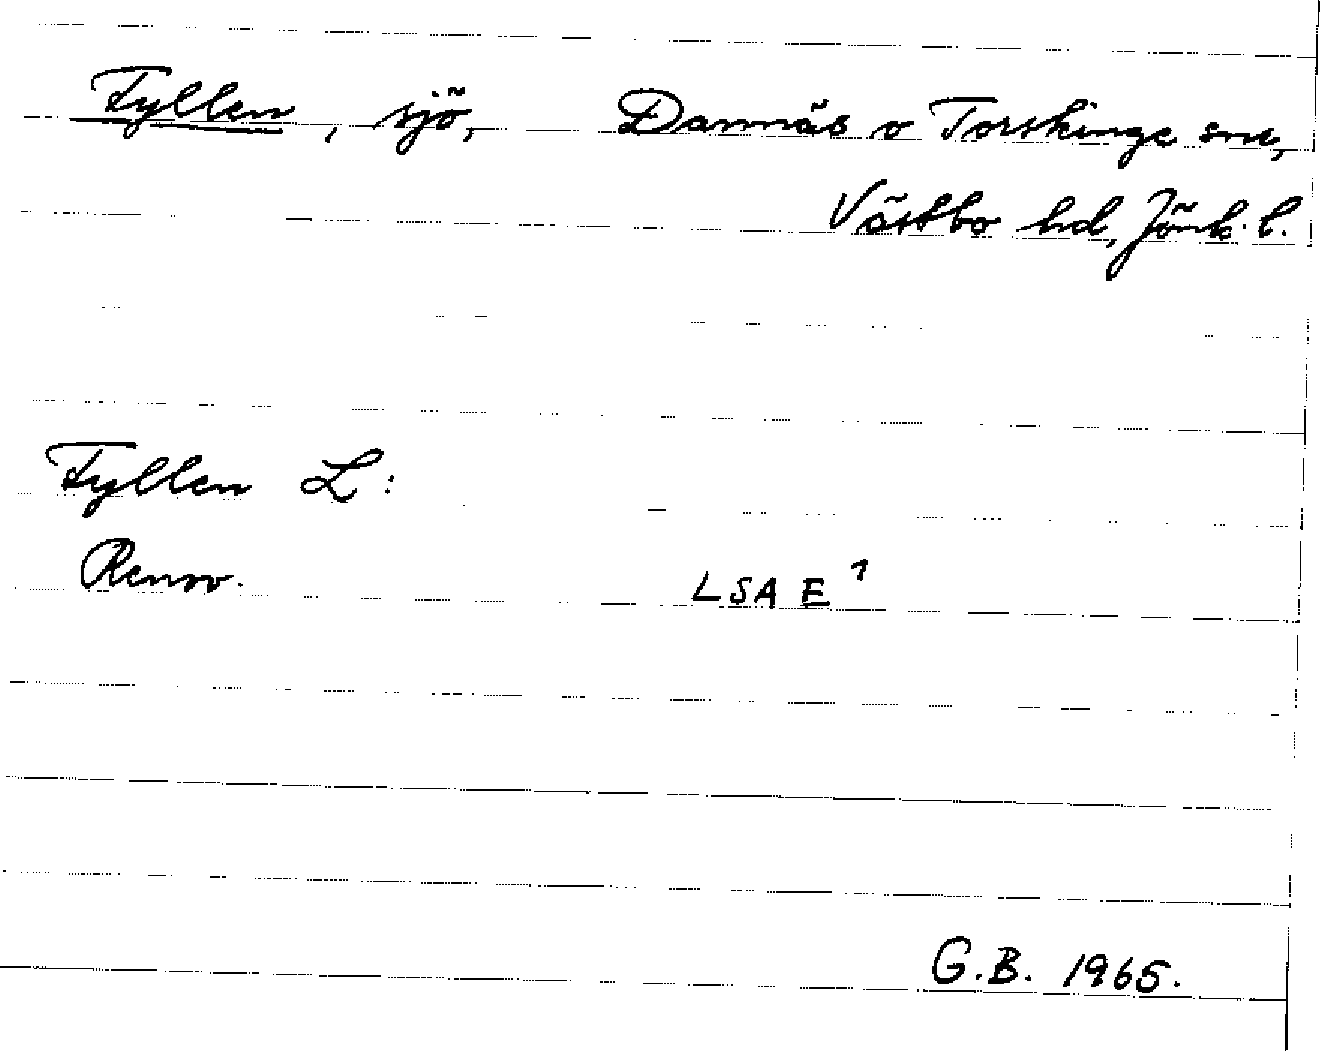 Fyllen, sjö, Dannäs o Torskinge snr,
Västbo hd, Jönk. l.
Fyllen L:
Renov. LSA E 1
G.B. 1965.